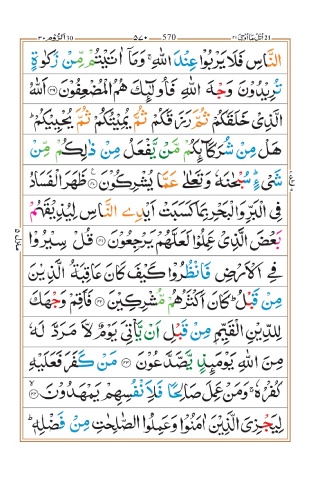 570 ۵۷۰
النَّاسِ فَلَا يَرْبُوا۟ عِنْدَ اللّٰهِ ۚ وَمَاۤ اٰتَيْتُمْ مِّنْ زَكٰوةٍ
تُرِيْدُوْنَ وَجْهَ اللّٰهِ فَاُولٰٓئِكَ هُمُ الْمُضْعِفُوْنَ ﴿۳۹﴾ اَللّٰهُ
الَّذِيْ خَلَقَكُمْ ثُمَّ رَزَقَكُمْ ثُمَّ يُمِيْتُكُمْ ثُمَّ يُحْيِيْكُمْ ؕ
هَلْ مِنْ شُرَكَآئِكُمْ مَّنْ يَّفْعَلُ مِنْ ذٰلِكُمْ مِّنْ
شَيْءٍ ؕ سُبْحٰنَهٗ وَتَعٰلٰى عَمَّا يُشْرِكُوْنَ ﴿۴۰﴾ ظَهَرَ الْفَسَادُ
فِي الْبَرِّ وَالْبَحْرِ بِمَا كَسَبَتْ اَيْدِي النَّاسِ لِيُذِيْقَهُمْ
بَعْضَ الَّذِيْ عَمِلُوْا لَعَلَّهُمْ يَرْجِعُوْنَ ﴿۴۱﴾ قُلْ سِيْرُوْا
فِي الْاَرْضِ فَانْظُرُوْا كَيْفَ كَانَ عَاقِبَةُ الَّذِيْنَ
مِنْ قَبْلُ ؕ كَانَ اَكْثَرُهُمْ مُّشْرِكِيْنَ ﴿۴۲﴾ فَاَقِمْ وَجْهَكَ
لِلدِّيْنِ الْقَيِّمِ مِنْ قَبْلِ اَنْ يَّاْتِيَ يَوْمٌ لَّا مَرَدَّ لَهٗ
مِنَ اللّٰهِ يَوْمَئِذٍ يَّصَّدَّعُوْنَ ﴿۴۳﴾ مَنْ كَفَرَ فَعَلَيْهِ
كُفْرُهٗ ۚ وَمَنْ عَمِلَ صَالِحًا فَلِاَنْفُسِهِمْ يَمْهَدُوْنَ ﴿۴۴﴾ ۙ
لِيَجْزِيَ الَّذِيْنَ اٰمَنُوْا وَعَمِلُوا الصّٰلِحٰتِ مِنْ فَضْلِهٖ ؕ